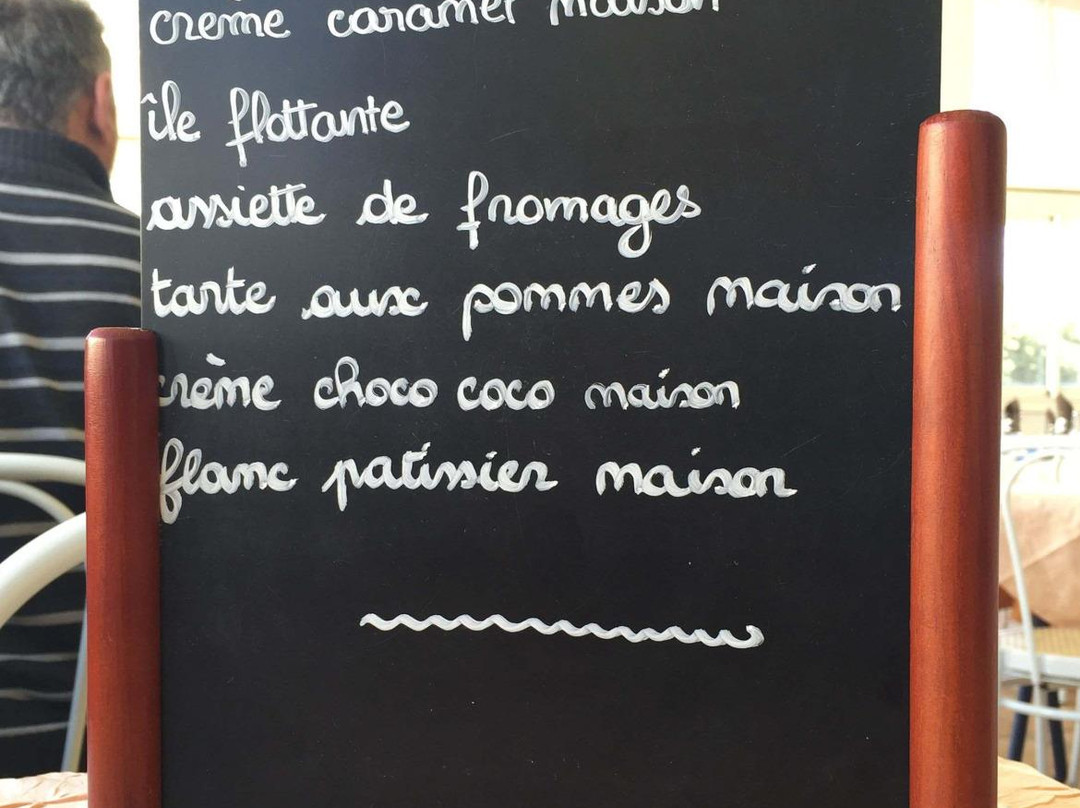 crème caramel maison
île flottante
assiette de fromages
tarte aux pommes maison
crème choco coco maison
flanc patissier maison